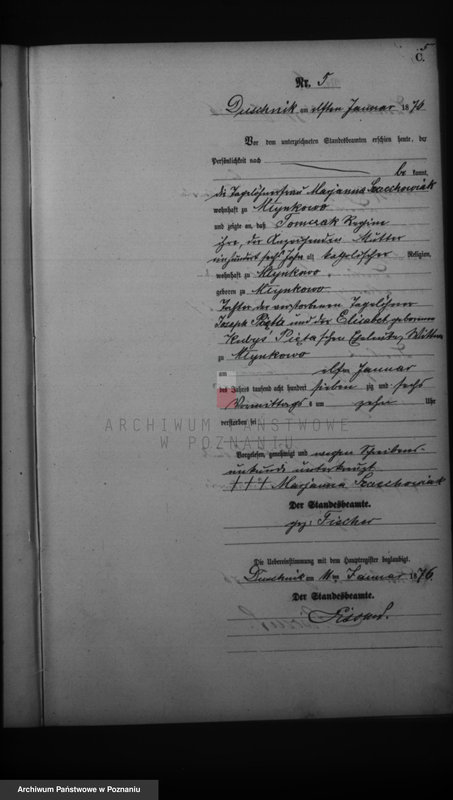 5
C.
Nr. 5
Duschnik am elften Januar 1876.
Vor dem unterzeichneten Standesbeamten erschien heute, der
Persönlichkeit nach
be kannt,
die Tagelöhnerfrau Marjanna
wohnhaft zu Mlynkowo
und zeigte an, daß Tomczak Regine
ihre, der Anzeigenden Mutter
einhundert sechs Jahre alt, katholischer Religion,
wohnhaft zu Mlynkowo,
geboren zu Mlynkowo
Tochter der verstorbenen Tagelöhner
Joseph und der Elisabet geborenen
Kubys Eheleute, Wittwe
zu Mlynkowo
am elften Januar
des Jahres tausend acht hundert sieben zig und sechs
Vormittags um zehn Uhr
verstorben sei
ARCHIWUM PAŃSTWOWE
W POZNANIU
Vorgelesen, genehmigt und wegen Schreibens-
unkunde unterkreuzt
+++ Marjanna
Der Standesbeamte.
gez. Fischer
Die Uebereinstimmung mit dem Hauptregister beglaubigt.
Duschnik am 11ten Januar 1876.
Der Standesbeamte.
Archiwum Państwowe w Poznaniu